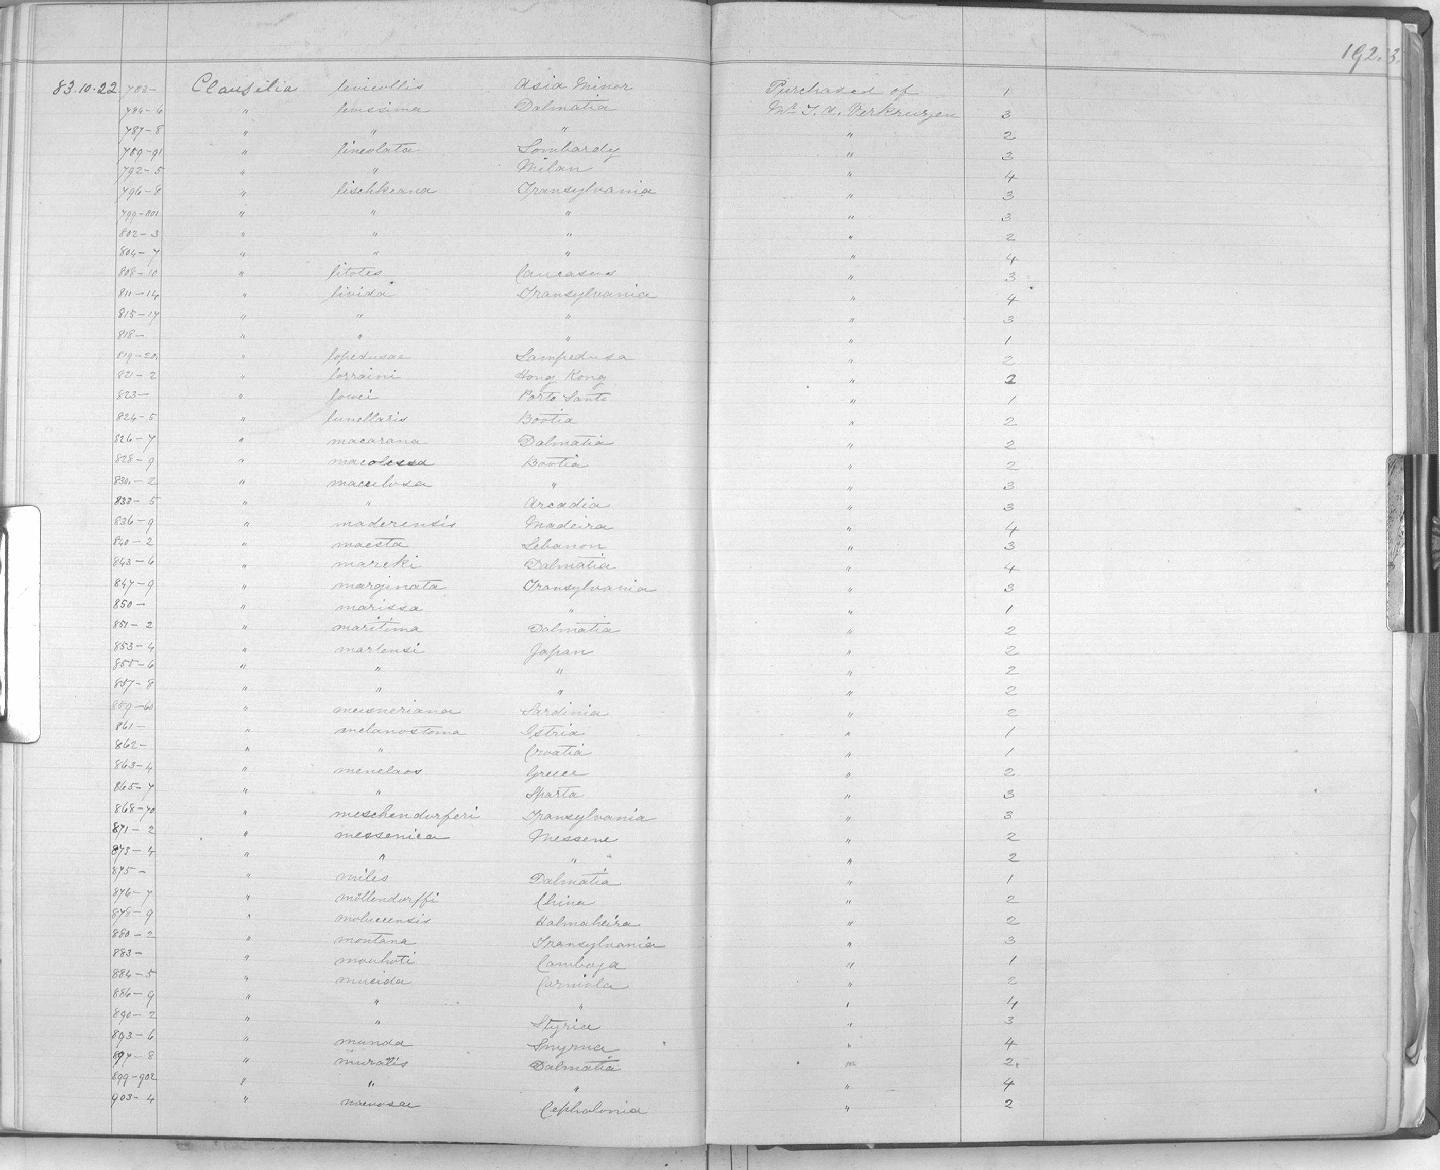 192.3.
83.10.22 783- Clausilia levicollis Asia Minor Purchased of 1
784-6 " levissima Dalmatia Mr T. A. Verkruzen 3
787-8 " " " " 2
789-91 " lineolata Lombardy " 3
792-5 " " Milan " 4
796-8 " lischkeana Transylvania " 3
799-801 " " " " 3
802-3 " " " " 2
804-7 " " " " 4
808-10 " litotes Caucasus " 3
811-14 " livida Transylvania " 4
815-17 " " " " 3
818- " " " " 1
819-20 " lopedusae Lampedusa " 2
821-2 " lorraini Hong Kong " 2
823- " lowei Porto Santo " 1
824-5 " lunellaris Bootia " 2
826-7 " macarana Dalmatia " 2
828-9 " Bootia " 2
830-2 " maculosa " " 3
833-5 " " Arcadia " 3
836-9 " maderensis Madeira " 4
840-2 " maesta Lebanon " 3
843-6 " mareki Dalmatia " 4
847-9 " marginata Transylvania " 3
850- " marissa " " 1
851-2 " maritima Dalmatia " 2
853-4 " martensi Japan " 2
855-6 " " " " 2
857-8 " " " " 2
859-60 " meisneriana Sardinia " 2
861- " melanostoma Istria " 1
862- " " Croatia " 1
863-4 " menelaos Greece " 2
865-7 " " Sparta " 3
868-70 " meschendorferi Transylvania " 3
871-2 " messenica Messene " 2
873-4 " " " " " 2
875- " miles Dalmatia " 1
876-7 " möllendorffi China " 2
878-9 " moluccensis Halmaheira " 2
880-2 " montana Transylvania " 3
883- " mouhoti Camboja " 1
884-5 " mucida Carniola " 2
886-9 " " " " 4
890-2 " " Styria " 3
893-6 " munda Smyrna " 4
897-8 " muralis Dalmatia " 2
899-902 " " " " 4
903-4 " naevosae Cephalonia " 2